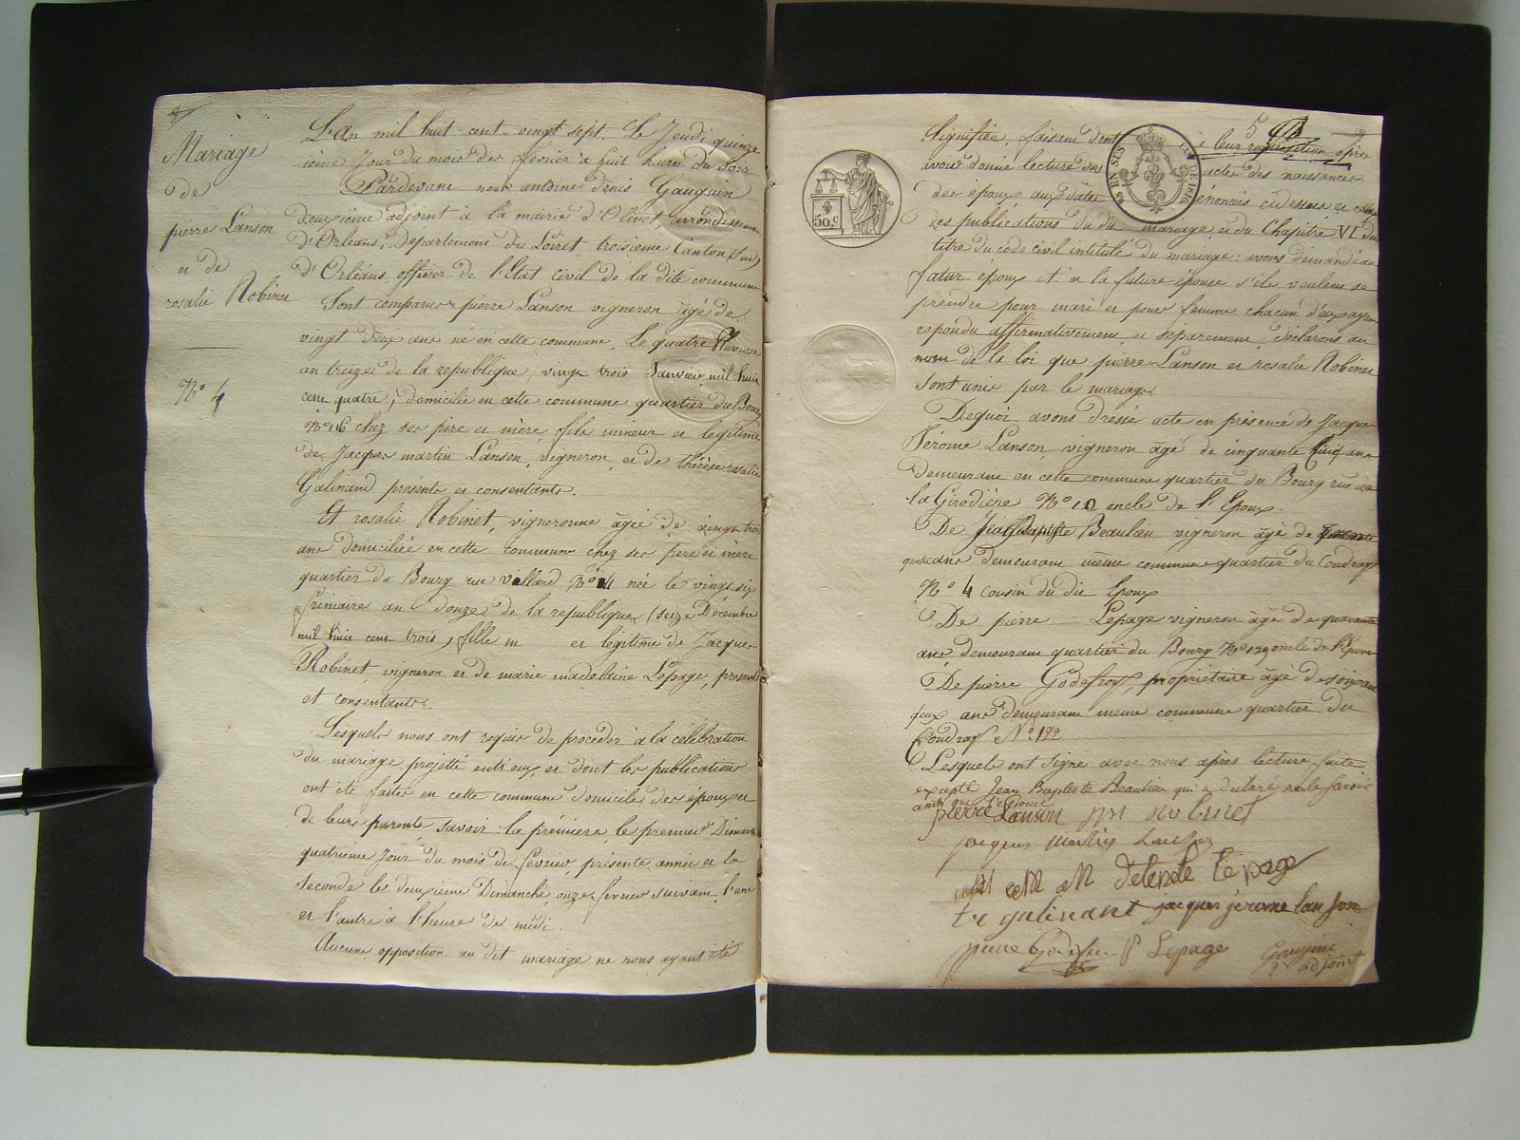 Mariage
de
pierre Lanson
et de
rosalie Robinet
N.o 4
L'An mil huit cent vingt sept. Le Jeudi quinze
ième Jour du mois de février à huit heures du soir
Pardevant nous antoine denis Gauguin
deuxième adjoint à la mairie d'Olivet, arrondissement
d'Orléans, Département du Loiret troisième Canton (sud)
d'Orléans officier de l'Etat civil de la dite commune
Sont comparus pierre Lanson vigneron âgé de
vingt deux ans né en cette commune, Le quatre
an treize de la republique, vingt trois Janvier mil huit
cent quatre, domicilié en cette commune quartier du Bourg
N.o 16 chez ses père et mère, fils mineur et légitime
de Jacques martin Lanson, vigneron et de thérèse rosalie
Galinand présents et consentants.
Et rosalie Robinet, vigneronne âgée de vingt trois
ans domiciliée en cette commune chez ses père et mère
quartier du Bourg rue N.o née le vingt six
frimaire an douze de la republique (seize Décembre
mil huit cent trois, fille m et légitime de Jacques
Robinet, vigneron et de marie madelaine Lepage, présents
et consentants.
Lesquels nous ont requis de proceder à la célébration
du mariage projetté entr'eux et dont les publications
ont été faites en cette commune domicile des époux et
de leurs parents savoir: la première, le premier Dimanche
quatrième Jour du mois de février, présente année et la
seconde le deuxième Dimanche, onze février suivant, l'une
et l'autre à l'heure de midi.
Aucune opposition au dit mariage ne nous ayant été
5
Signifiée, faisant droit à leur requisition après
avoir donné lecture des actes de naissances
des époux, aux dates énoncés cidessus et
des publications du dit mariage et du Chapitre VI du
titre du code civil intitulé du mariage: avons demandé au
futur époux et à la future épouse s'ils veulent se
prendre pour mari et pour femme chacun d'eux ayant
repondu affirmativement et séparement, déclarons au
nom de la loi que pierre Lanson et rosalie Robinet
sont unis par le mariage.
De quoi avons dressé acte en présence de Jacques
Jérome Lanson, vigneron âgé de cinquante cinq ans
demeurant en cette commune quartier du Bourg rue de
la Girodière N.o 10 oncle de l'Epoux.
De Jean Baptiste Beaulieu vigneron âgé de quarante
ans demeurant même commune quartier du Coudray
N.o 4 cousin du dit Epoux
De pierre Lepage vigneron âgé de quarante
ans demeurant quartier du Bourg N.o oncle de l'Epouse
De pierre Godefroy, propriétaire âgé de soixante
deux ans demeurant meme commune quartier du
Coudray N.o 122
Lesquels ont signé avec nous après lecture faite
excepté Jean Baptiste Beaulieu qui a declaré ne le savoir
ami de l'épouse
pierre Lanson robinet
jacques martin Lanson
Lepage
t r galinant jacques jérome lanson
pierre Godefroy P Lepage
adjoint
50.c